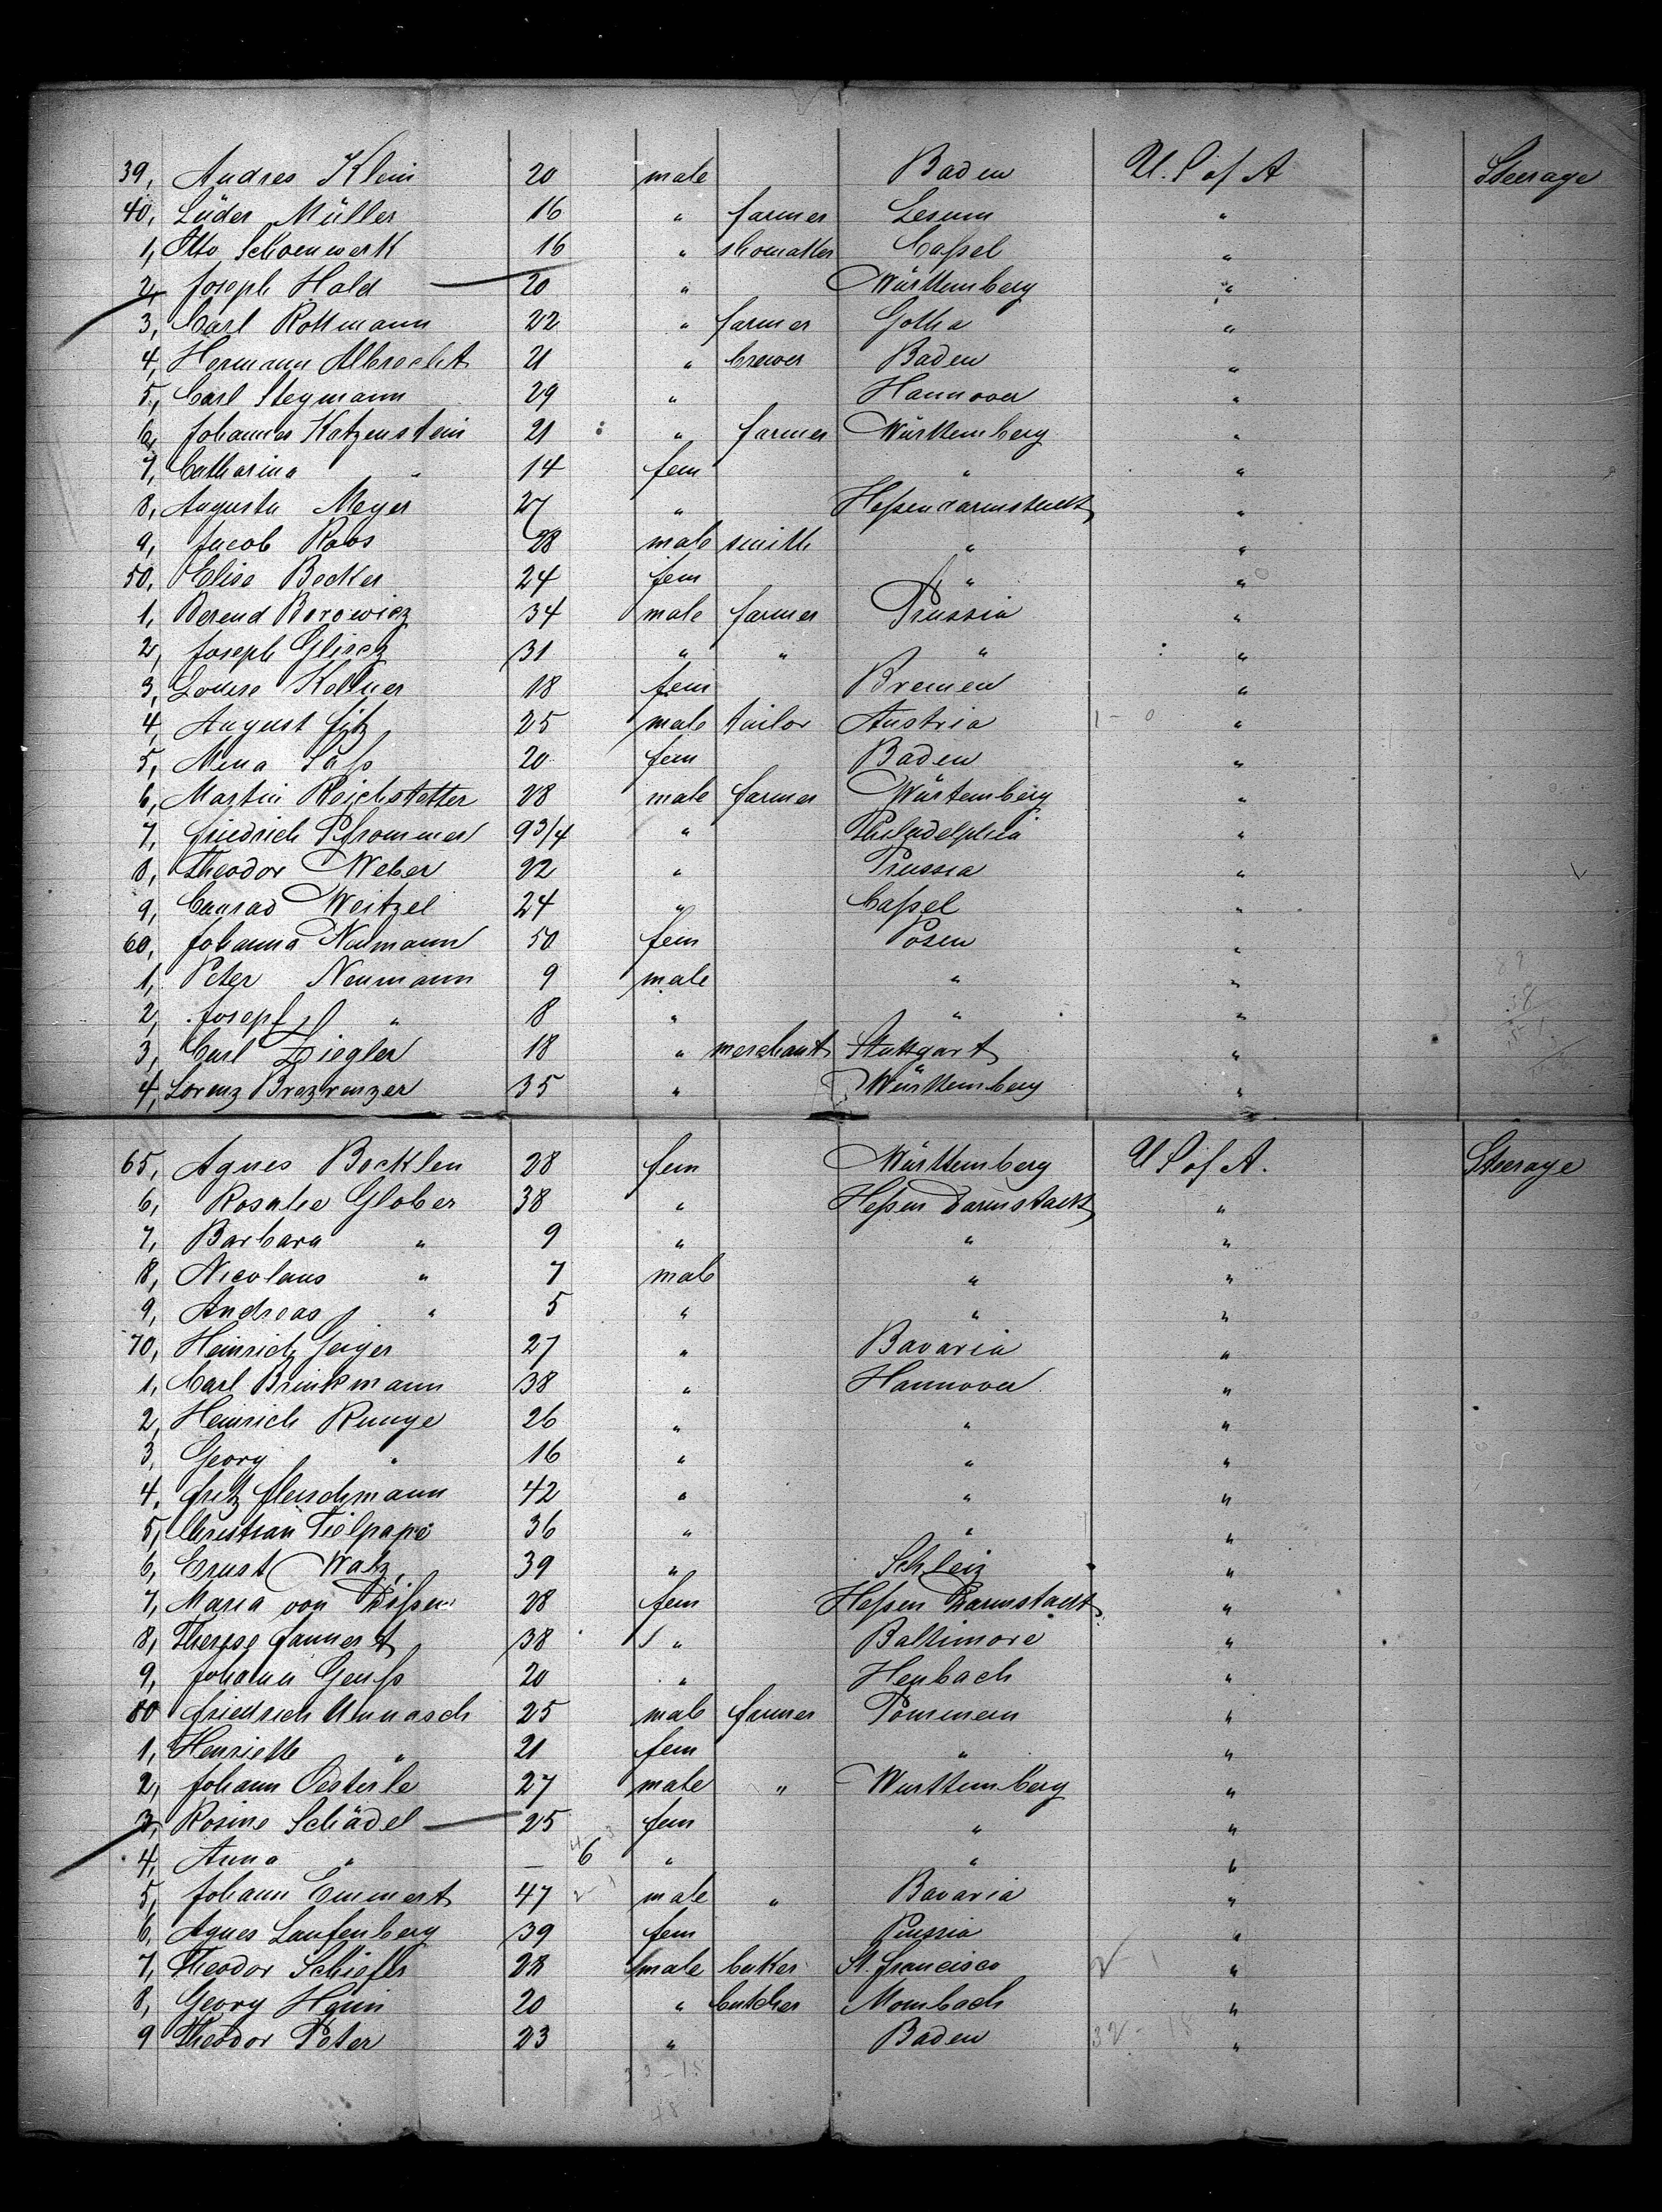 39, Andres Klein 20 male Baden U. S of A Steerage
40, Lüder Müller 16 " farmer Lesum "
1, Otto Schoenwerk 16 " shomaker Caſsel "
2, Joseph Hald 20 " Württemberg "
3, Carl Rottmann 22 " farmer Gotha "
4, Hermann Albrecht 21 " brewer Baden "
5, Carl Stegmann 29 " Hannover "
6, Johannes Katzenstein 21 " farmer Württemberg "
7, Catharina " 14 fem " "
8, Augusta Meyer 27 " Heſsen darmstadt "
9, Jacob Roos 28 male smith " "
50, Elise Becker 24 fem " "
1, Berend Borowicz 34 male farmer Prussia "
2, Joseph Gliscz 31 " " " "
3, Louise Kellner 18 fem Bremen "
4, August Fitz 25 male tailor Austria "
5, Mina Saſs 20 fem Baden "
6, Martin Reichstetter 28 male farmer Würtemberg "
7, Friedrich Pfrommer 9 3/4 " Philadelphia "
8, Theodor Weber 22 " Prussia "
9, Conrad Weitzel 24 " Caſsel "
60, Johanna Neumann 50 fem Posen "
1, Peter Neumann 9 male " "
2, Joseph " 8 " " "
3, Carl Ziegler 18 " merchant Stuttgart "
4, Lorenz 35 " Württemberg "
65, Agnes Bocklen 28 fem Württemberg U S of A. Steerage
6, Rosalie Glober 38 " Heſsen Darmstadt "
7, Barbara " 9 " " "
8, Nicolaus " 7 male " "
9, Andreas " 5 " " "
70, Heinrich Geiger 27 " Bavaria "
1, Carl Brinkmann 38 " Hannover "
2, Heinrich Runge 26 " " "
3, Georg " 16 " " "
4, Fritz Fleischmann 42 " " "
5, Christian Tielpape 36 " " "
6, Ernst Walz, 39 " Schleiz "
7, Maria von Diſsen 28 fem Heſsen Darmstadt "
8, Therese Fannert 38 " Baltimore "
9, Johann Genſs 20 " Heubach "
80 Friedrich Unnasch 25 male farmer Pommern "
1, Henriette " 21 fem " "
2, Johann Oesterle 27 male " Wurttemberg "
3, Rosine Schädel 25 fem " "
4, Anna " — 6 " " "
5, Johann Emmert 47 male " Bavaria "
6, Agnes Laufenberg 39 fem Prussia "
7, Theodor Schiefer 28 male baker St. Francisco "
8, Georg Hain 20 " butcher Mombach "
9 Theodor Peter 23 " Baden "